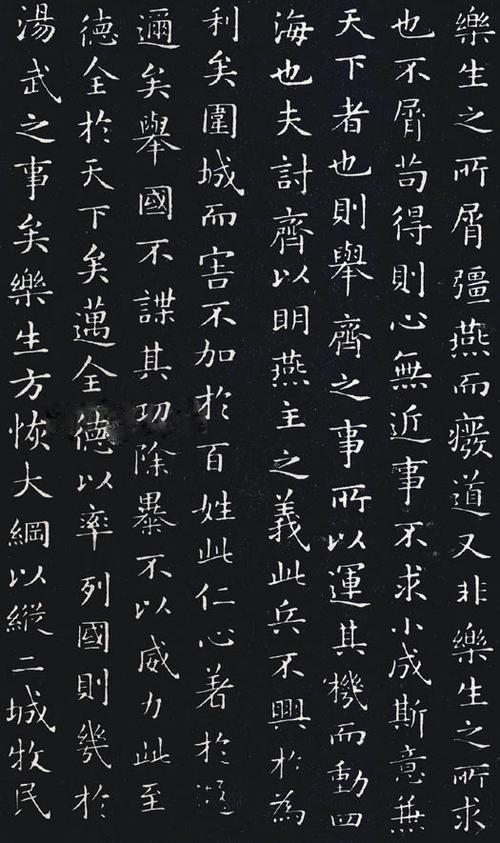 樂生之所屑彊燕而癈道又非樂生之所求
也不屑苟得則心無近事不求小成斯意兼
天下者也則舉齊之事所以運其機而動四
海也夫討齊以明燕主之義此兵不興於為
利矣圍城而害不加於百姓此仁心著於遐
邇矣舉國不謀其功除暴不以威力此至
德全於天下矣邁全德以率列國則幾於
湯武之事矣樂生方恢大綱以縱二城牧民